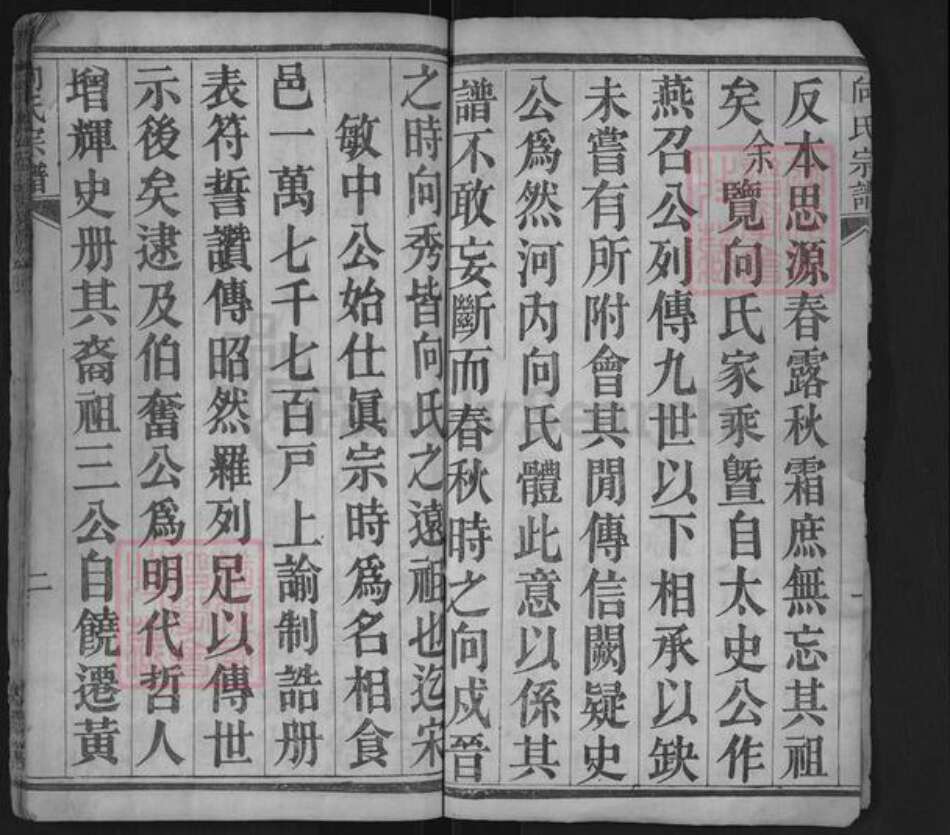 向氏宗譜
反本思源春露秋霜庶無忘其祖
矣余覽向氏家乘曁自太史公作
燕召公列傳九世以下相承以缺
未嘗有所附會其閒傳信闕疑史
公爲然河內向氏體此意以係其
譜不敢妄斷而春秋時之向戍晉
之時向秀皆向氏之遠祖也迄宋
敏中公始仕眞宗時爲名相食
邑一萬七千七百戸上諭制誥册
表符誓讚傳昭然羅列足以傳世
示後矣逮及伯奮公爲明代哲人
增輝史册其裔祖三公自饒遷黃
向氏宗譜
二